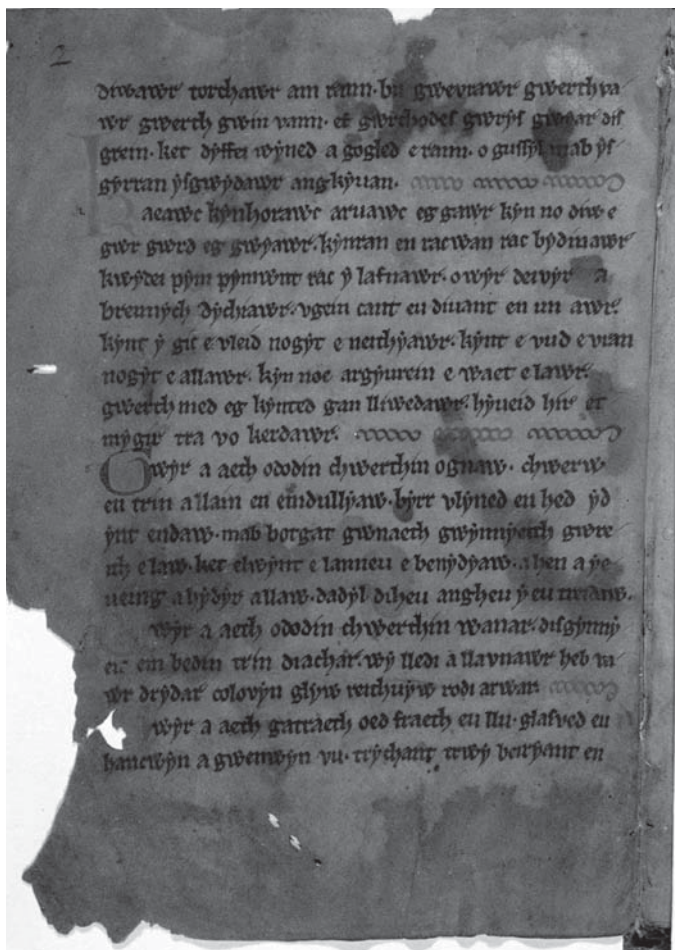 2
diwawr torchawr am rann. bu gwevrawr gwerthva
wr gwerth gwin vann. ef gwrthodes gwrẏs gwyar dis
grein. ket dẏffei wẏned a gogled e rann. o gussẏl mab ẏs
gẏrran ẏsgwẏdawr angkẏuan.
Kaeawc kẏnhorawc aruawc eg gawr kẏn no diw e
gwr gwrd eg gwẏawr. kẏnran en racwan rac bẏdinawr
kwẏdei pẏm pẏmwnt rac ẏ lafnawr. o wẏr deivẏr a
brennẏch dẏchiawr. vgein cant eu diuant en un awr.
kẏnt ẏ gic e vleid nogẏt e neithẏawr. kẏnt e vud e vran
nogẏt e allawr. kẏn noe argẏurein e waet e lawr.
gwerth med eg kẏnted gan lliwedawr. hẏueid hir et
mẏgir tra vo kerdawr.
Gwẏr a aeth ododin chwerthin ognaw. chwerw
eu trin a llain en emdullẏaw. bẏrr vlẏned en hed ẏd
ẏnt endaw. mab botgat gwnaeth gwẏnnẏeith gwre
ith e law. ket elwẏnt e lanneu e benẏdẏaw. a hen a ẏe
ueing a hẏdẏr a llaw. dadẏl diheu angheu ẏ eu treidaw.
wẏr a aeth ododin chwerthin wanar. disgẏnnẏ
eis em bedin trin diachar. wẏ lledi a llavnawr heb va
wr drẏdar colovẏn glẏw reithuẏw rodi arwar.
wẏr a aeth gatraeth oed fraeth eu llu. glasved eu
hancwẏn a gwenwẏn vu. trẏchant trwẏ beirẏant en